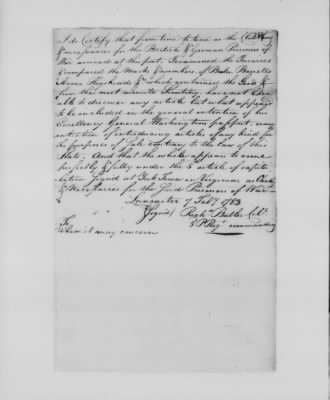 I do Certify that from time to time as the Cloathing
& necessaries for the British & German Prisoners of
War arrived at this post, I examined the Invoices
& Compared the Marks & numbers of Bales Barrells
Boxes Hogsheads &c which contained the Goods &
from the most minute Scrutiny have not been
able to discover any article but what appears
to be included in the general intention of his
Excellency General Washingtons passport, or any
intention of introducing articles of any kind for
the purposes of Sale contrary to the laws of this
State, And that the whole appear to come
perfectly & fully under the 5 article of capitu
lation Signed at York Town in Virginia as Cloathing
& Necessaries for the said Prisoners of War
Lancaster 7 Feby 1783
(Signed) Richd Butler Col.
3 P. Regt commanding
To
Whom it may concern